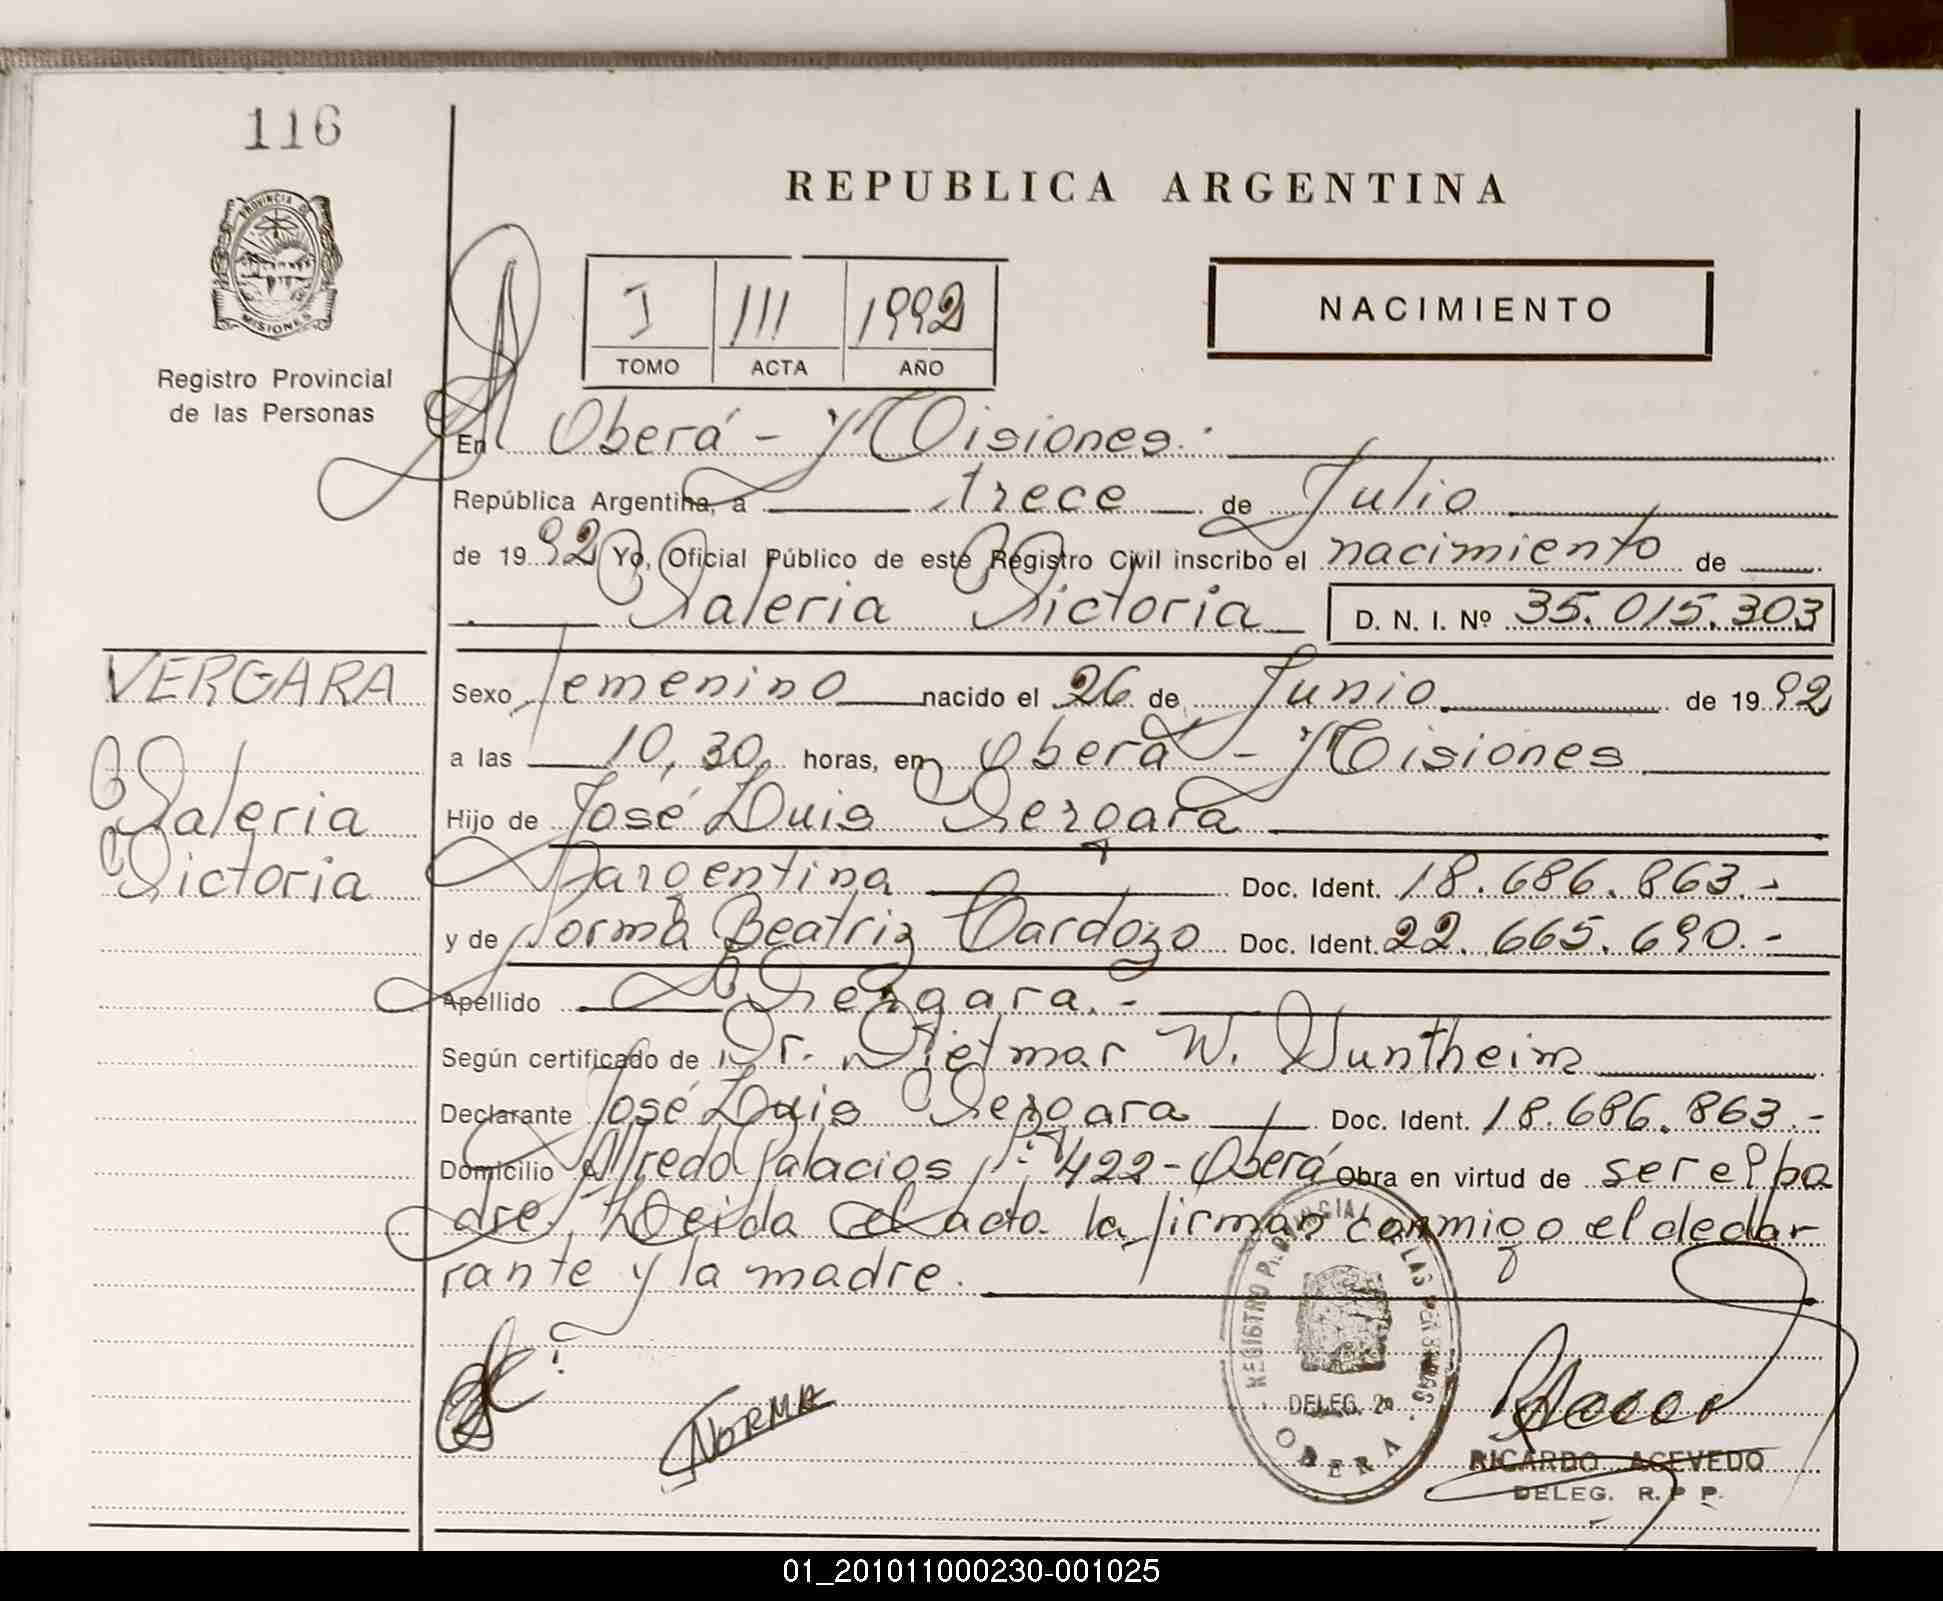 116
REPUBLICA ARGENTINA
PROVINCIA DE
MISIONES
Registro Provincial
de las Personas
I 111 1992
TOMO ACTA AÑO
NACIMIENTO
En Oberá - Misiones.
República Argentina, a trece de Julio
de 1992 Yo, Oficial Público de este Registro Civil inscribo el nacimiento de
Valeria Victoria D. N. I. Nº 35.015.303
VERGARA
Valeria
Victoria
Sexo femenino nacido el 26 de Junio de 1992
a las 10,30 horas, en Oberá - Misiones
Hijo de José Luis Vergara
argentina Doc. Ident. 18.686.863.-
y de Norma Beatriz Cardozo Doc. Ident. 22.665.690.-
Apellido Vergara.-
Según certificado de Dr. Dietmar W. Guntheim
Declarante José Luis Vergara Doc. Ident. 18.686.863.-
Domicilio Alfredo Palacios Nº 422 - Oberá Obra en virtud de ser el pa
dre. Leida el acta la firman conmigo el decla
rante y la madre.
NORMA
REGISTRO PROVINCIAL DE LAS PERSONAS
DELEG. 2a
OBERA
RICARDO ACEVEDO
DELEG. R. P P.
01_201011000230-001025